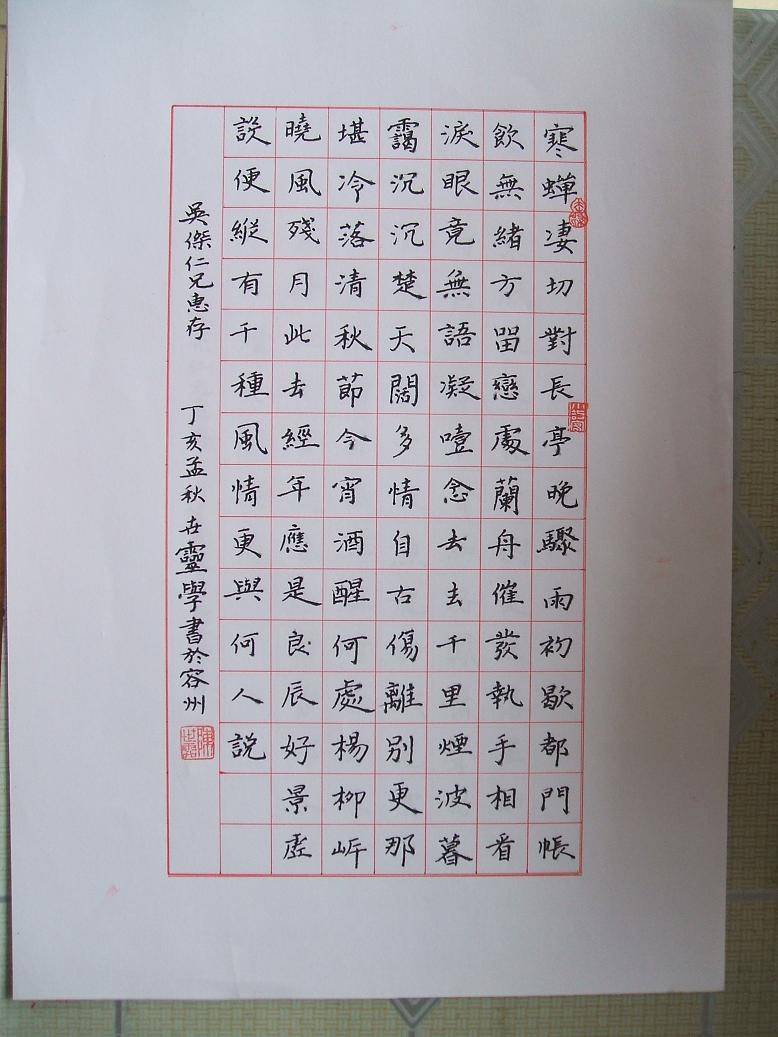 寒蟬凄切對長亭晚驟雨初歇都門帳
飲無緒方留戀處蘭舟催發執手相看
淚眼竟無語凝噎念去去千里煙波暮
靄沉沉楚天闊多情自古傷離別更那
堪冷落清秋節今宵酒醒何處楊柳岸
曉風殘月此去經年應是良辰好景虛
設便縱有千種風情更與何人說
吳傑仁兄惠存 丁亥孟秋 世靈學書於容州
陳世靈